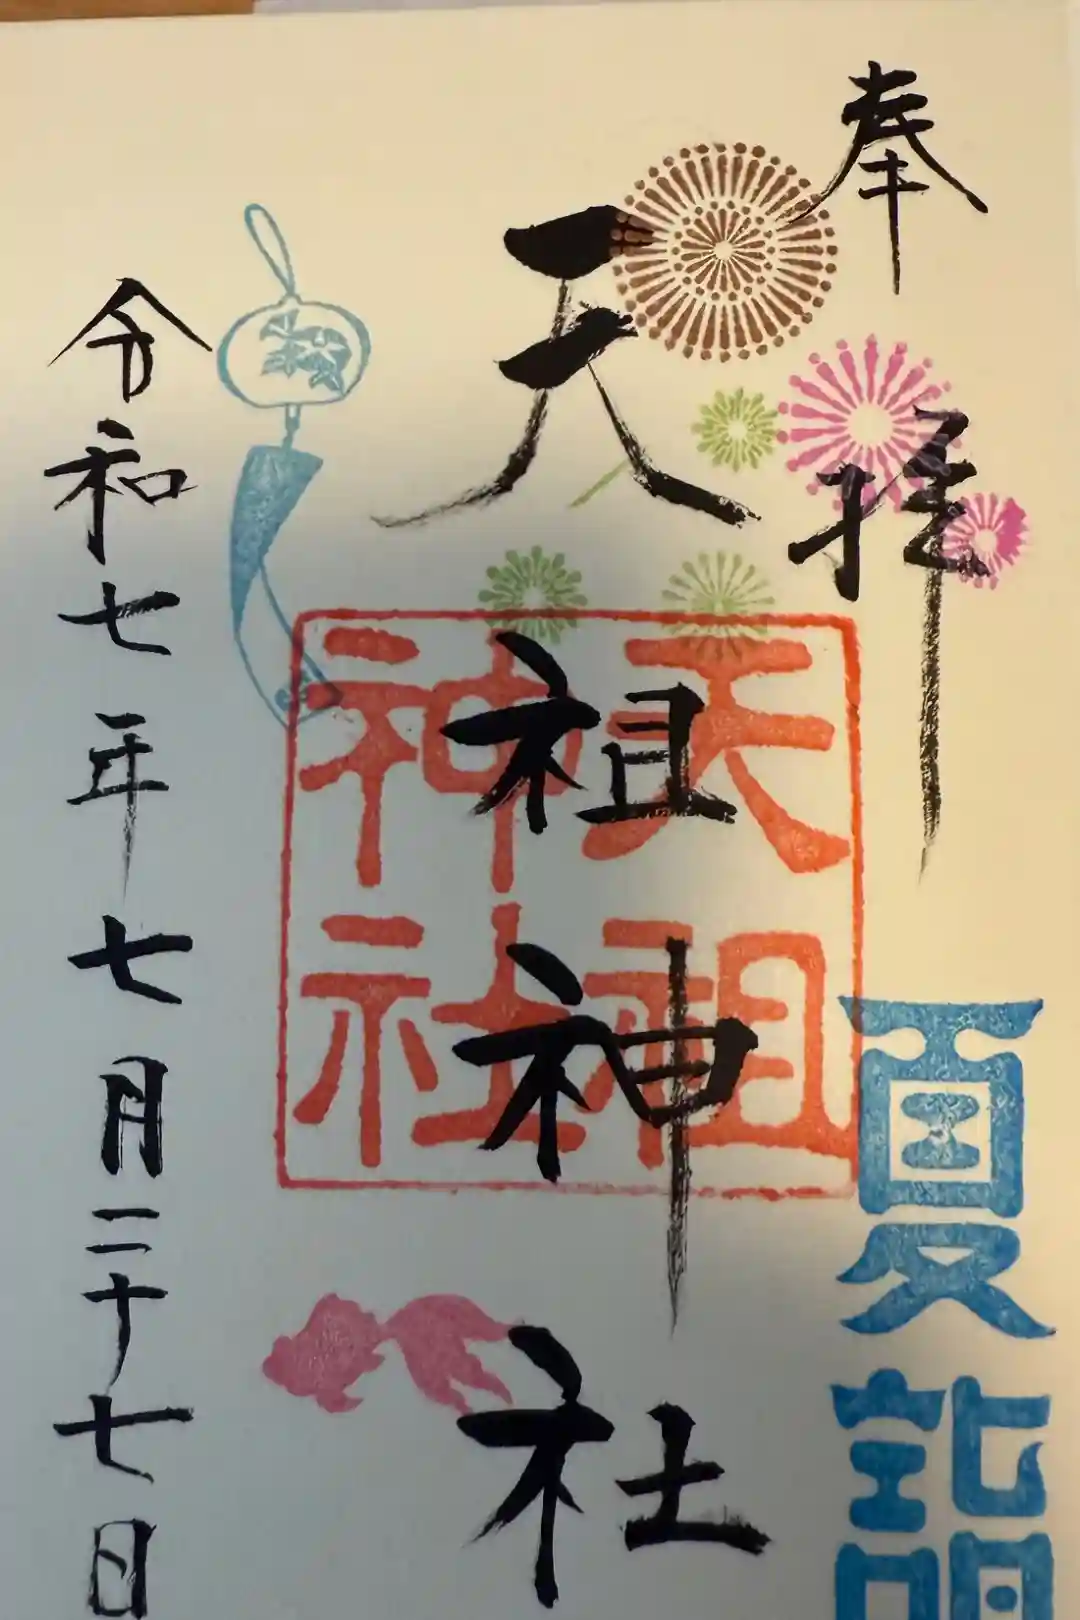 奉拝
夏詣
天祖神社
天祖
神社
令和七年七月二十七日